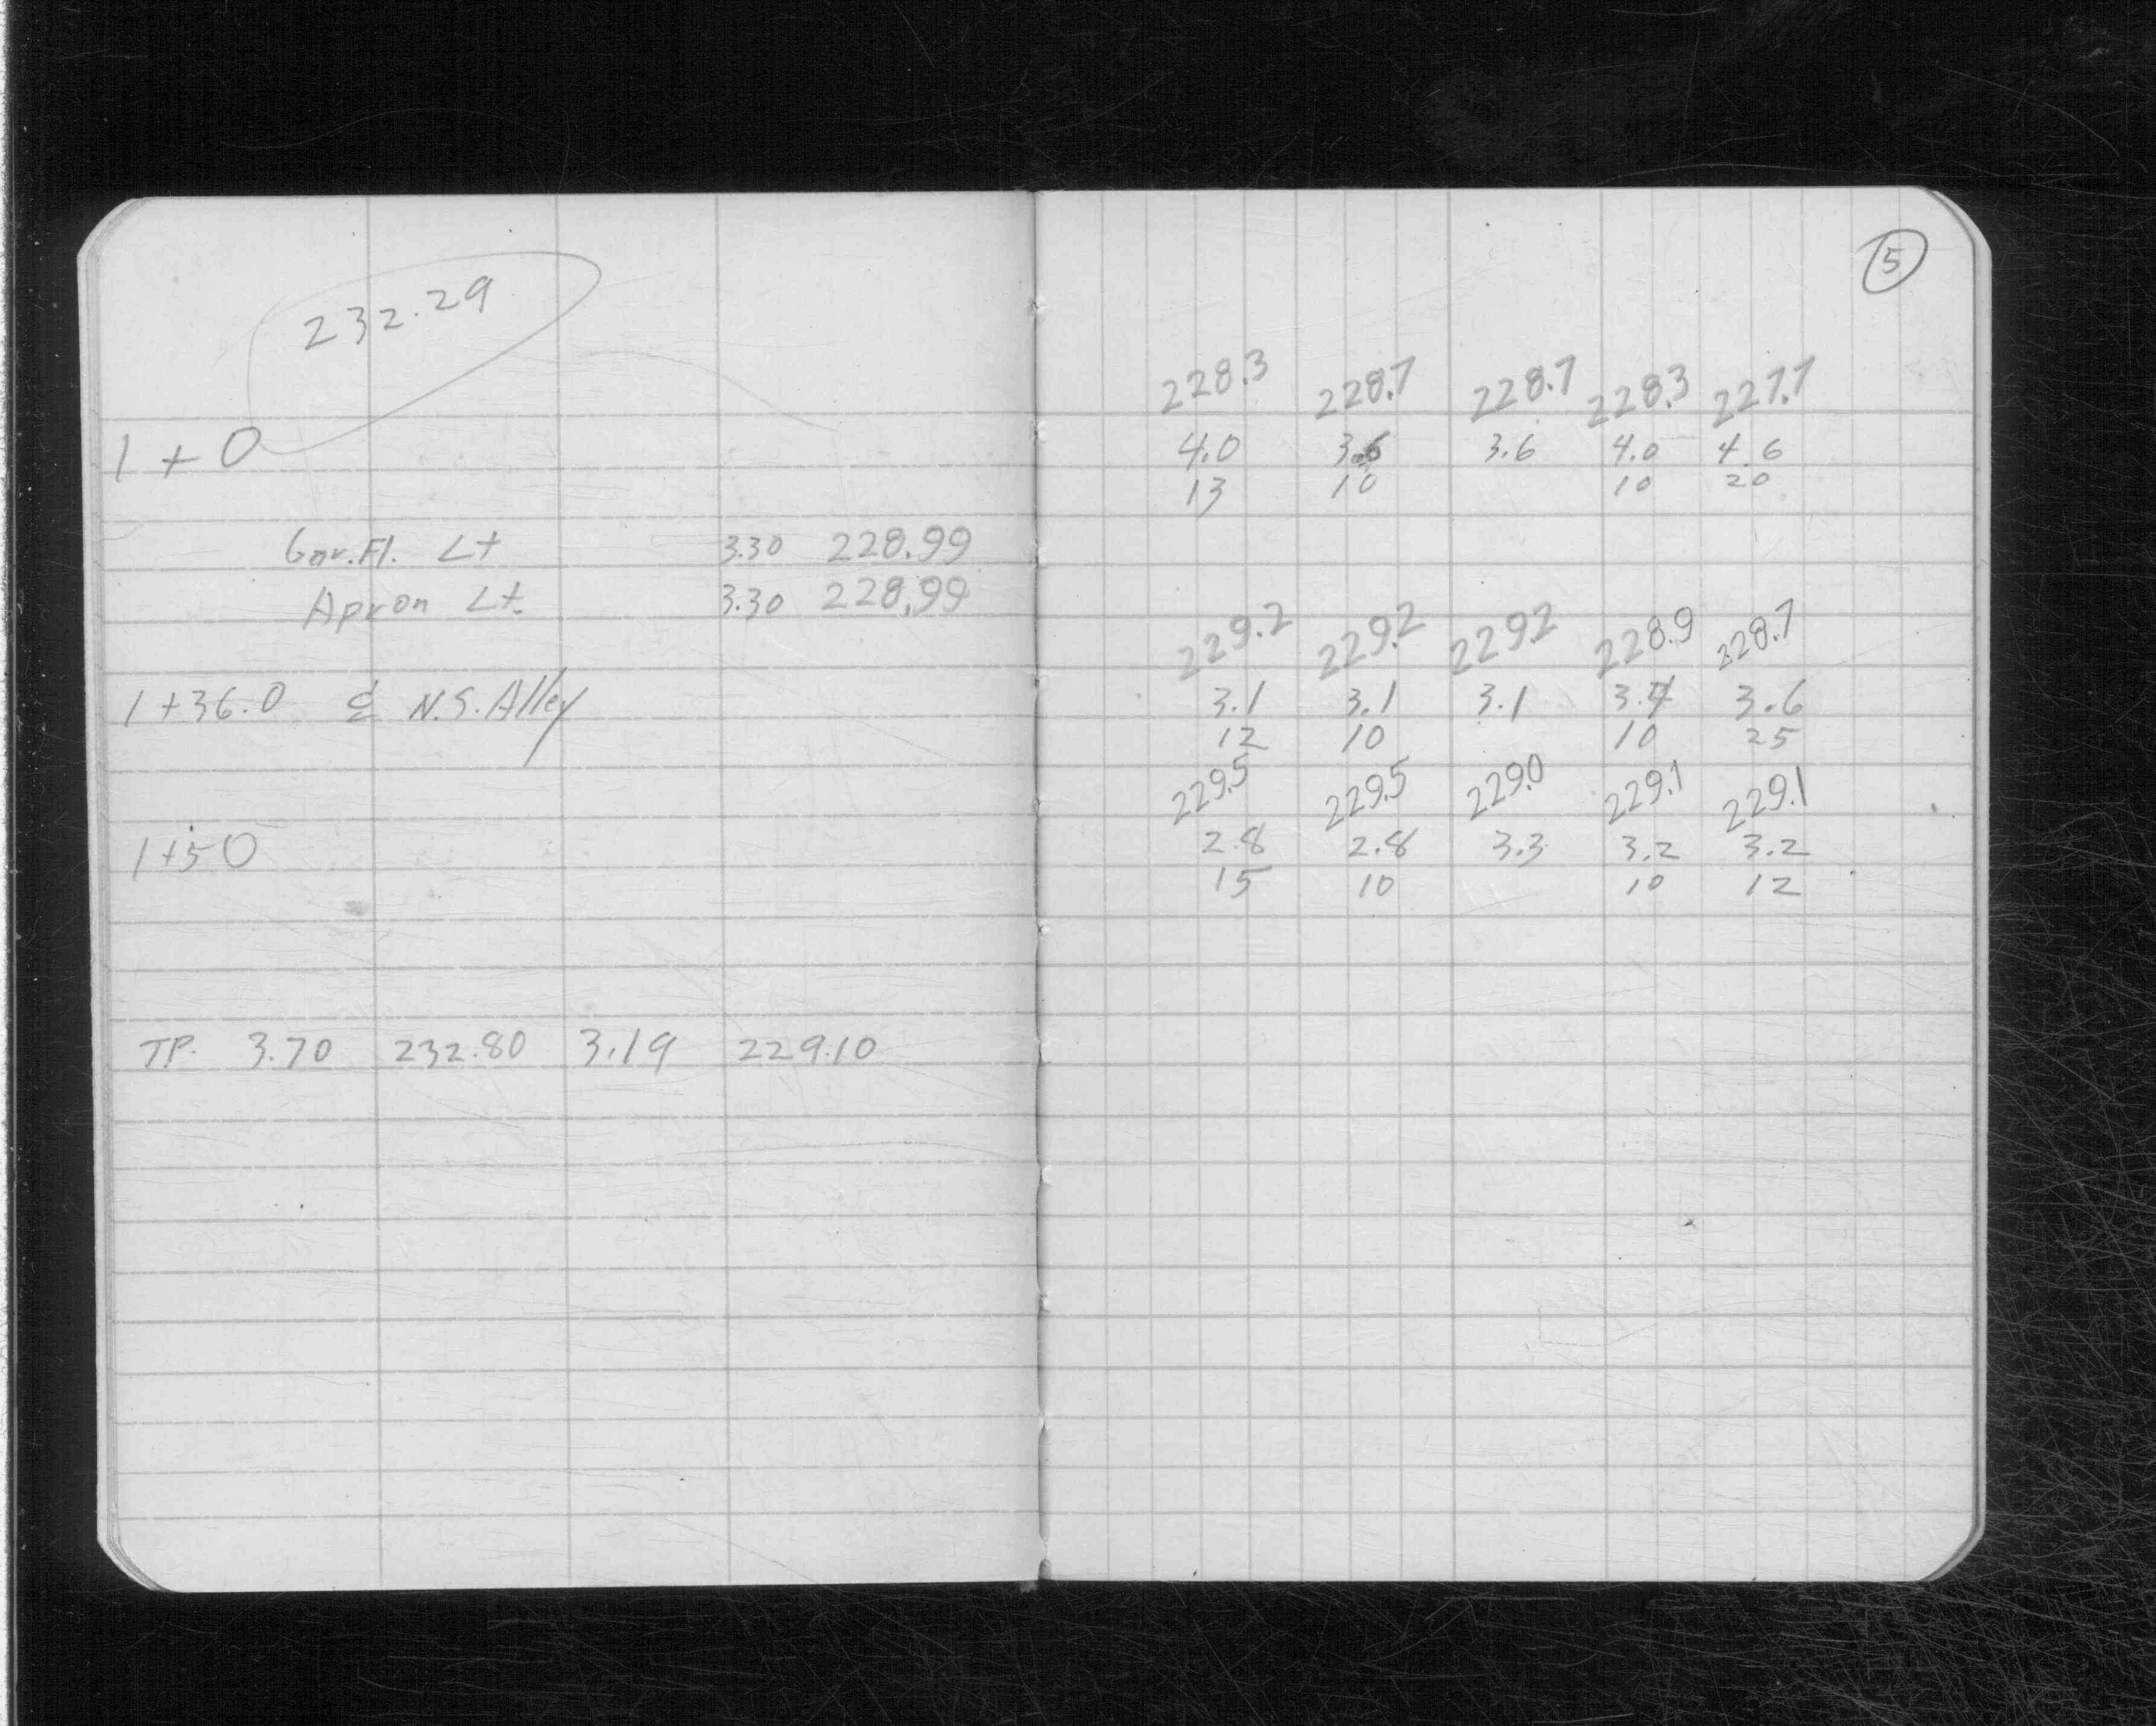 232.29
1+0
Gar. Fl. Lt 3.30 228.99
Apron Lt. 3.30 228.99
1+36.0 ℄ N.S. Alley
1+50
TP. 3.70 232.80 3.19 229.10
5
228.3 228.7 228.7 228.3 227.7
4.0 3.6 3.6 4.0 4.6
13 10 10 20
229.2 229.2 229.2 228.9 228.7
3.1 3.1 3.1 3.4 3.6
12 10 10 25
229.5 229.5 229.0 229.1 229.1
2.8 2.8 3.3 3.2 3.2
15 10 10 12